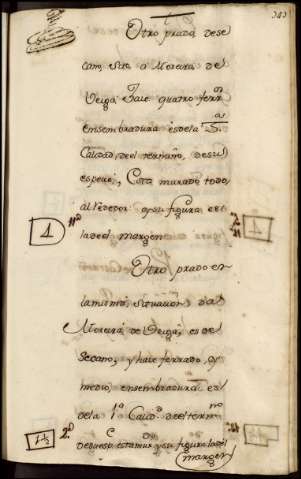 Otro prado dese
cam, Sito a Moreira de
Veiga, Haie quatro ferr.os
ensembradura es dela 3.as
Calidad, deel termino, desu
espeçie, esta murado todo,
al rededor y su figura es
la deel margen
1 11º
Otro prado en
la misma, Situacion da
Moreira de Veiga, es de
Secano, y haie ferrado, y
medio, ensembradura es
dela 1ª Calid.d deel term.no
1½ 2º
desu esp.e esta mur.do y su figura la del
margen